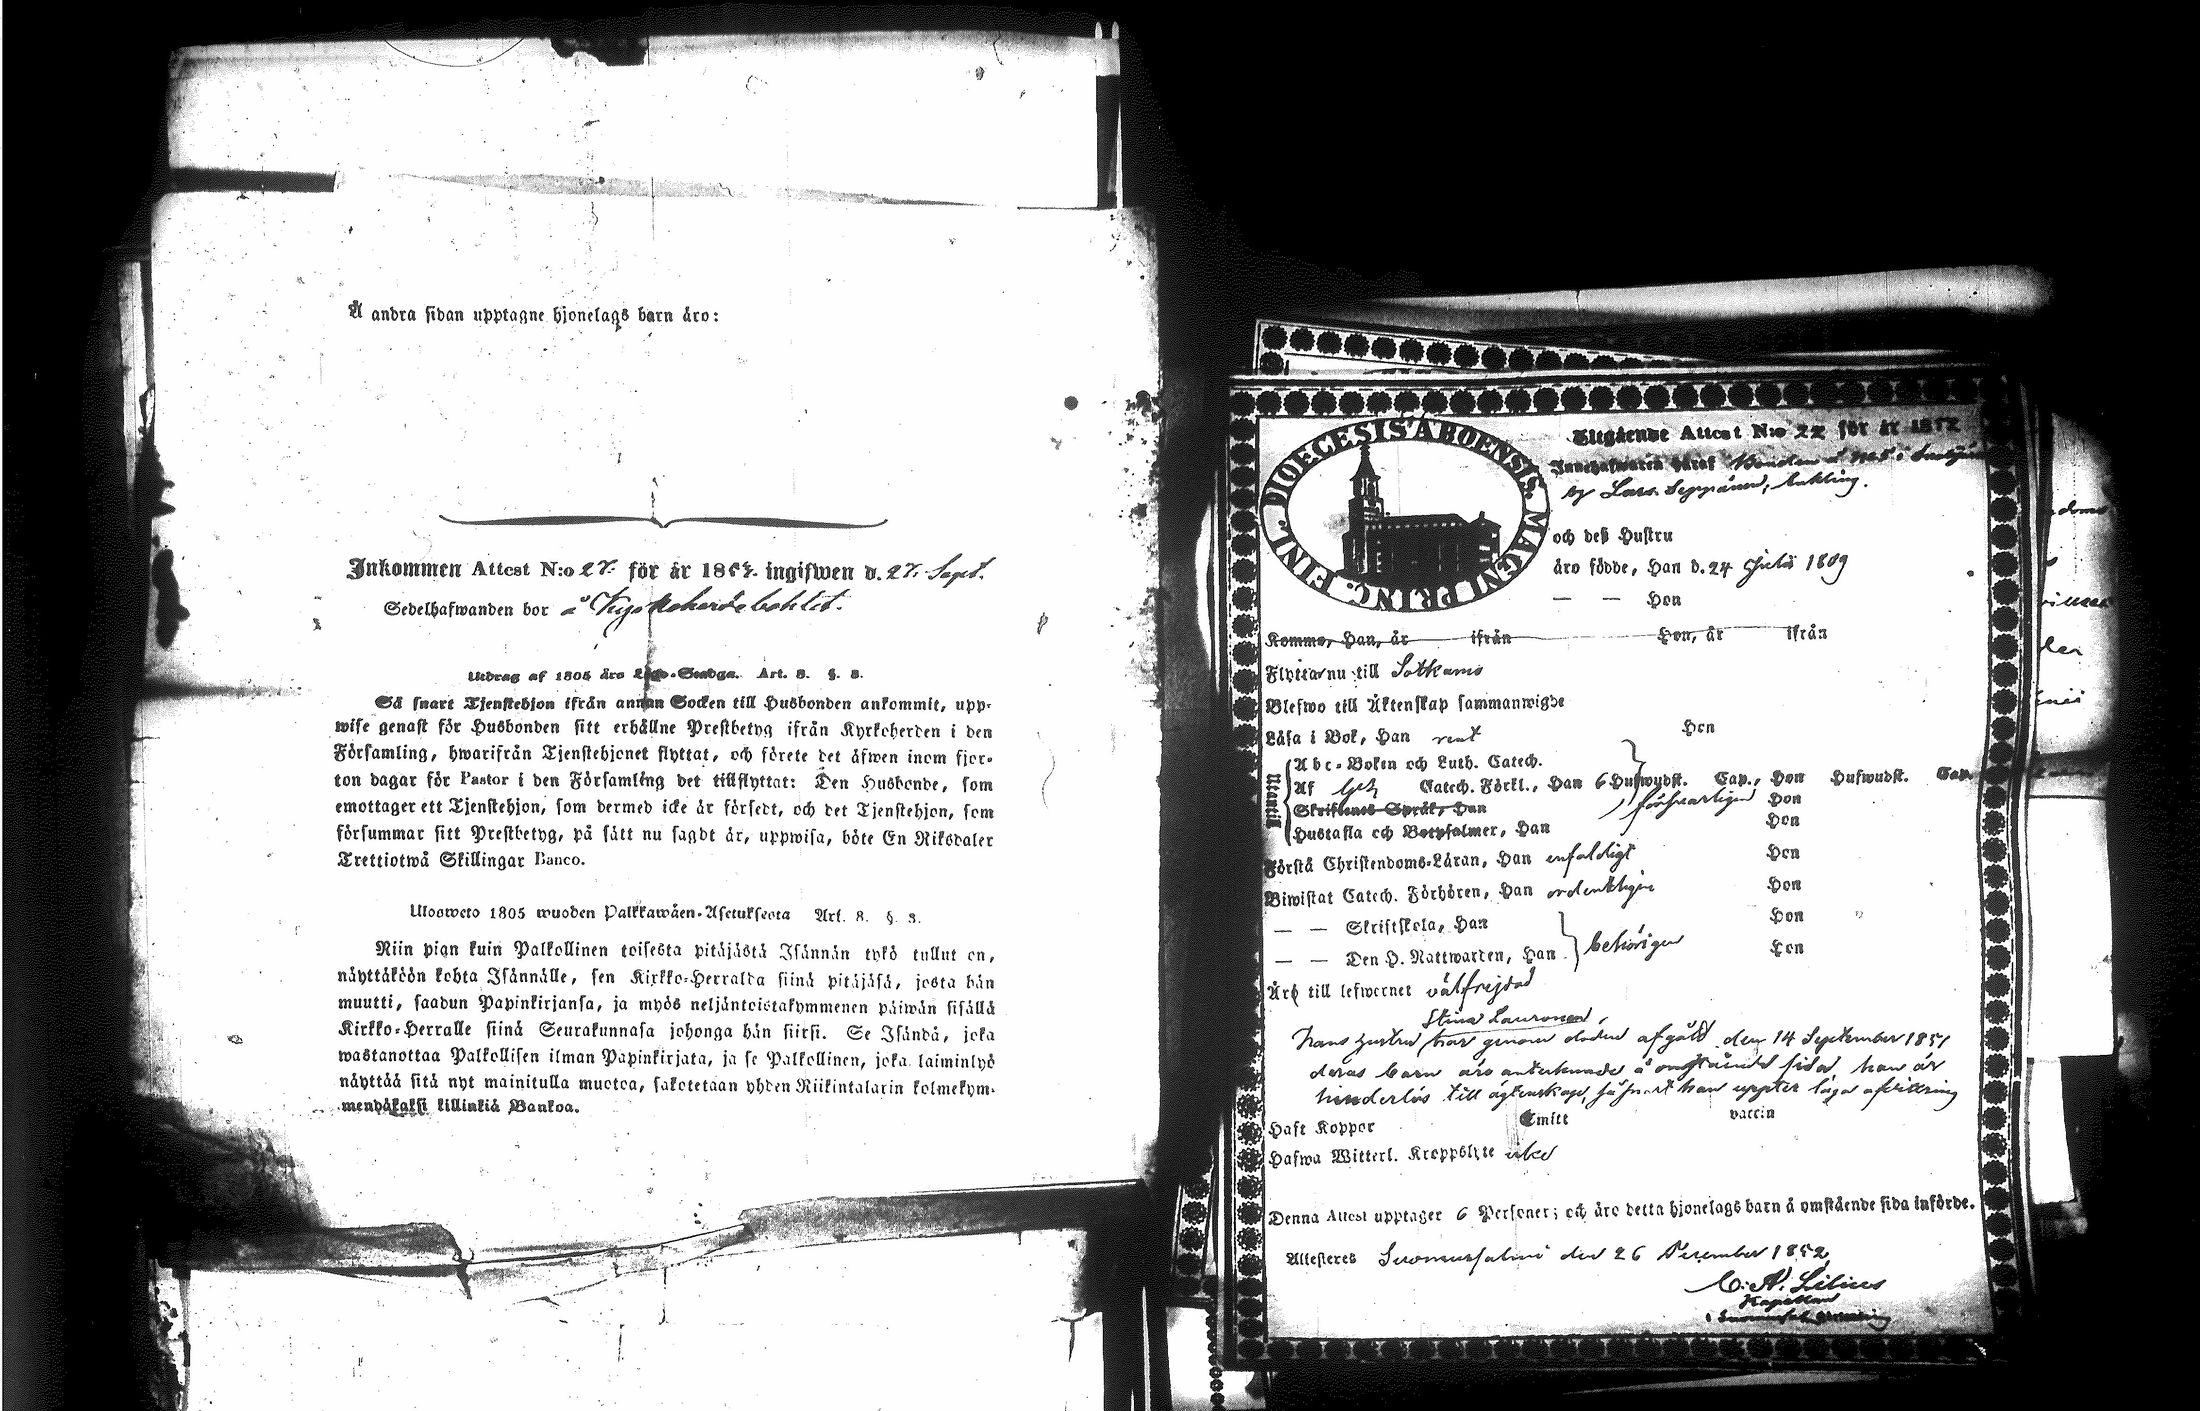 Å andra sidan upptagne hjonelags barn äro:
Inkommen Attest N:o 27. för år 1852. ingifwen d. 27. Sept.
Sedelhafwanden bor å Kyrkoherdebohlet.
Utdrag af 1805 års Lego-Stadga. Art. 8. §. 3.
Så snart Tjenstehjon ifrån annan Socken till Husbonden ankommit, upp-
wise genast för Husbonden sitt erhållne Prestbetyg ifrån Kyrkoherden i den
Församling, hwarifrån Tjenstehjonet flyttat, och förete det äfwen inom fjor-
ton dagar för Pastor i den Församling det tillflyttat: Den Husbonde, som
emottager ett Tjenstehjon, som dermed icke är försedt, och det Tjenstehjon, som
försummar sitt Prestbetyg, på sätt nu sagdt är, uppwisa, böte En Riksdaler
Trettiotwå Skillingar Banco.
Ulosweto 1805 wuoden Palkkawäen-Asetuksesta Art. 8. §. 3.
Niin pian kuin Palkollinen toisesta pitäjästä Isännän tykö tullut on,
näyttäköön kohta Isännälle, sen Kirkko-Herralda siinä pitäjäsä, josta hän
muutti, saadun Papinkirjansa, ja myös neljäntoistakymmenen päiwän sisällä
Kirkko-Herralle siinä Seurakunnasa johonga hän siirsi. Se Isändä, joka
wastanottaa Palkollisen ilman Papinkirjata, ja se Palkollinen, joka laiminlyö
näyttää sitä nyt mainitulla muotoa, sakotetaan yhden Riikintalarin kolmekym-
mendäkaksi killinkiä Bankoa.
DIOECESIS ABOENSIS. MAGNI PRINC. FINL.
Utgående Attest N:o 22 för år 1852
Innehafwaren häraf Bonden å No 5 i
by Lars Seppänen, enkling.
och deß Hustru
äro födde, Han d. 24 Julii 1809
— — Hon
Komme, Han, år ifrån Hon, år ifrån
Flyttar nu till Sotkamo
Blefwo till Äktenskap sammanwigde
Läsa i Bok, Han rent Hon
Utantill
Abc-Boken och Luth. Catech.
Af Catech. Förkl., Han 6 Hufwudst. Cap., Hon Hufwudst. Cap.
Skriftenes Språk, Han försvarligen Hon
Hustafla och Botpsalmer, Han Hon
Förstå Christendoms-Läran, Han enfaldigt Hon
Biwistat Catech. Förhören, Han ordentligen Hon
— — Skriftskola, Han Hon
— — Den H. Nattwarden, Han behörigen Hon
Äro till lefwernet välfrejdad
Stina Lauronen,
Hans hustru har genom döden afgått den 14 September 1851
deras barn äro antecknade å omstående sida, han är
hinderlös till ägtenskap, så snart han uppter laga afvittring
Haft Koppor Smitt vaccin
Hafwa Witterl. Kroppslyte icke
Denna Attest upptager 6 Personer; och äro detta hjonelags barn å omstående sida införde.
Attesteres Suomussalmi den 26 December 1852
C. A. Lilius
Kapellan
i Suomussalmi